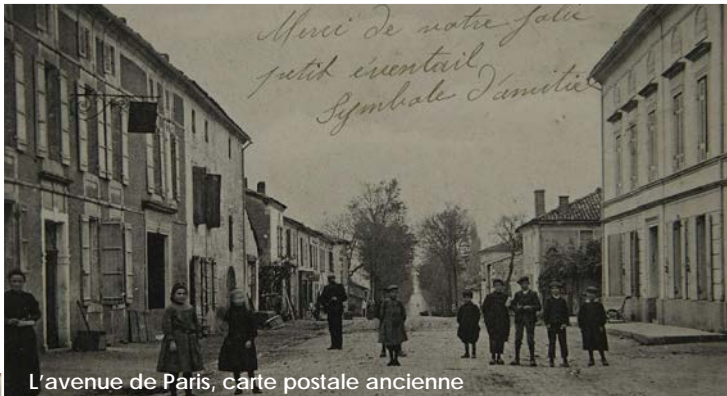 Merci de votre joli
petit éventail
Symbole d'amitié
L'avenue de Paris, carte postale ancienne